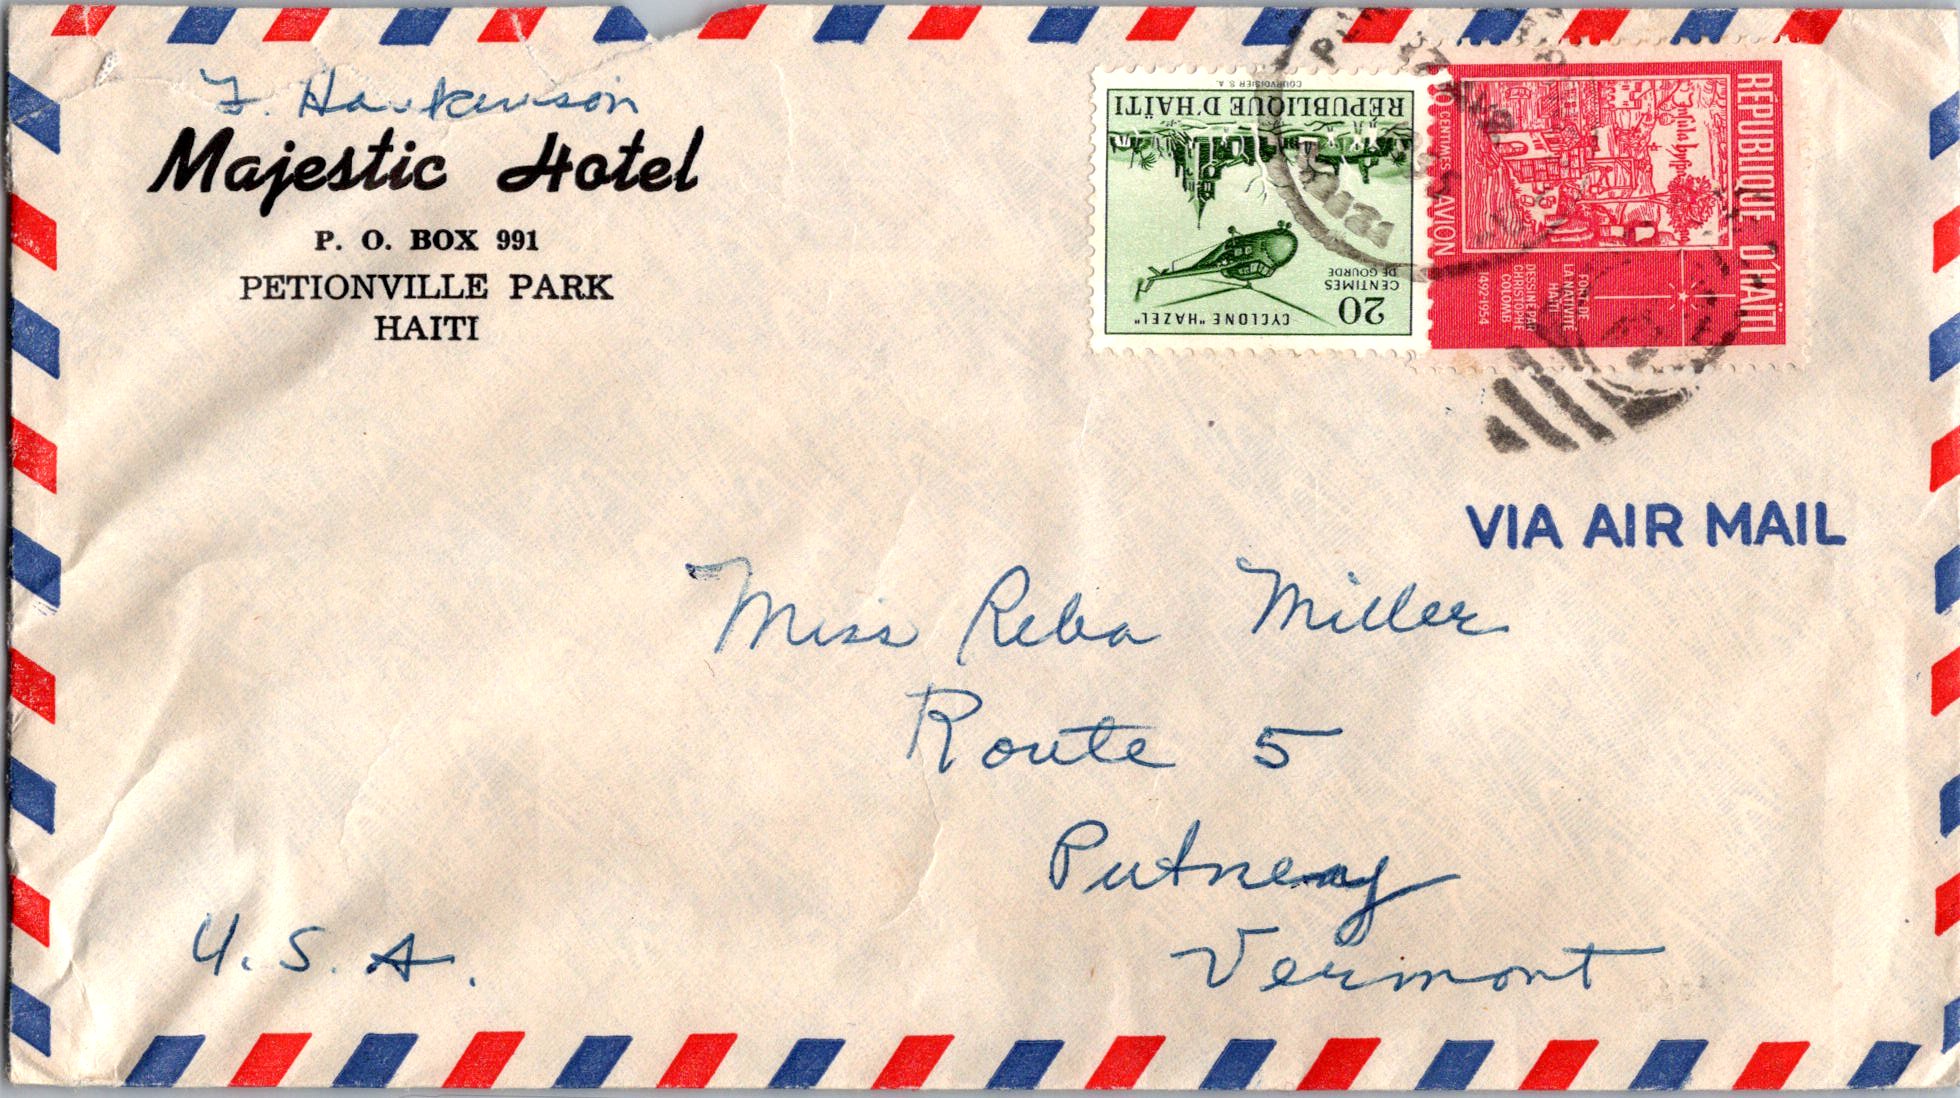 Majestic Hotel
P. O. BOX 991
PETIONVILLE PARK
HAITI
RÉPUBLIQUE D'HAÏTI
COURVOISIER S. A.
20
CENTIMES
DE GOURDE
CYCLONE "HAZEL"
RÉPUBLIQUE D'HAÏTI
CENTIMES AVION
FORT DE
LA NATIVITÉ
HAÏTI
DESSINÉ PAR
CHRISTOPHE
COLOMB
1492-1954
VIA AIR MAIL
Miss Reba Miller
Route 5
Putney
Vermont
U.S.A.